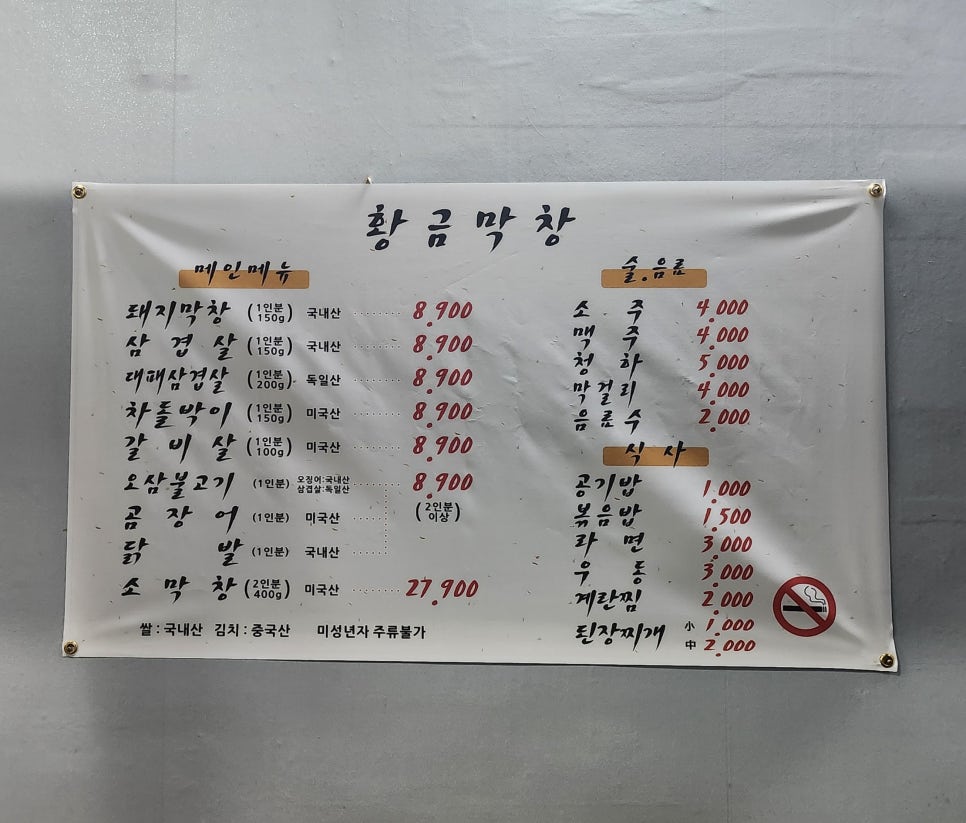 황금막창
메인메뉴
돼지막창 (1인분 150g) 국내산 8,900
삼겹살 (1인분 150g) 국내산 8,900
대패삼겹살 (1인분 200g) 독일산 8,900
차돌박이 (1인분 150g) 미국산 8,900
갈비살 (1인분 100g) 미국산 8,900
오삼불고기 (1인분) 오징어:국내산 삼겹살:독일산 8,900
곰장어 (1인분) 미국산 (2인분 이상)
닭발 (1인분) 국내산
소막창 (2인분 400g) 미국산 27,900
쌀 : 국내산 김치 : 중국산 미성년자 주류불가
술,음료
소주 4,000
맥주 4,000
청하 5,000
막걸리 4,000
음료수 2,000
식사
공기밥 1,000
볶음밥 1,500
라면 3,000
우동 3,000
계란찜 2,000
된장찌개 小 1,000
中 2,000